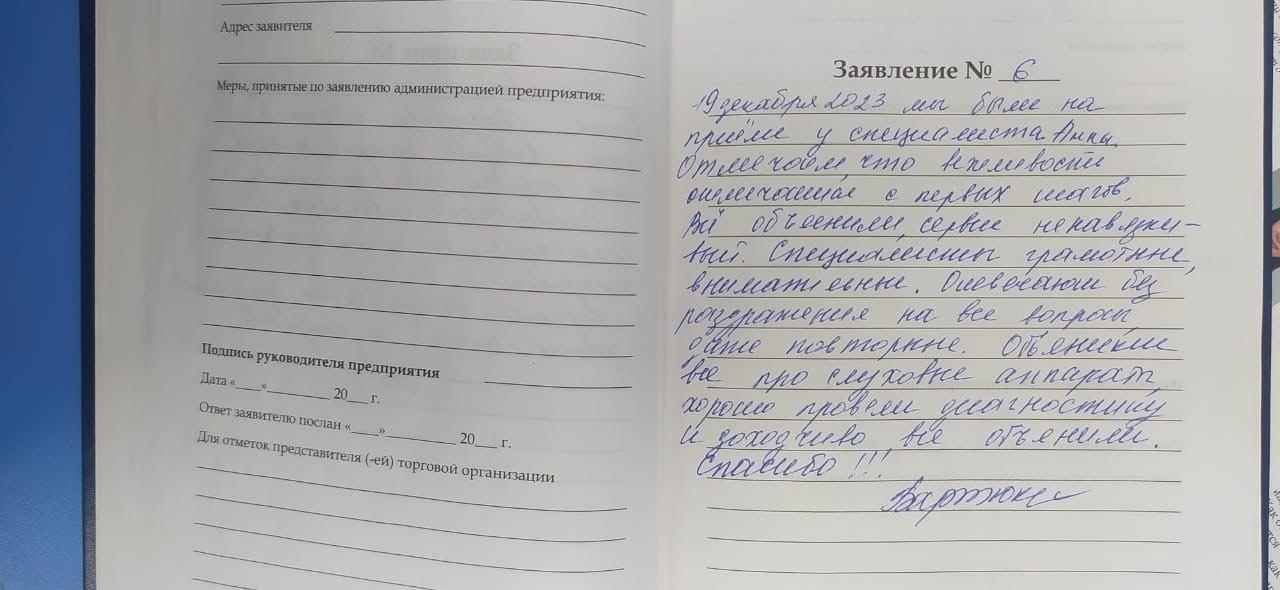 Адрес заявителя
Меры, принятые по заявлению администрацией предприятия:
Подпись руководителя предприятия
Дата «____»__________ 20___ г.
Ответ заявителю послан «____»__________ 20___ г.
Для отметок представителя (-ей) торговой организации
Заявление № 6
19 декабря 2023 мы были на
приёме у специалиста Анны.
Отмечаем, что вежливость
с первых шагов.
Всё объяснили, сервис ненавязчи-
вый. Специалисты грамотные,
внимательные. Отвечают без
раздражения на все вопросы
даже повторные. Объяснили
все про слуховые аппараты,
хорошо провели диагностику
и доходчиво все объяснили.
Спасибо!!!